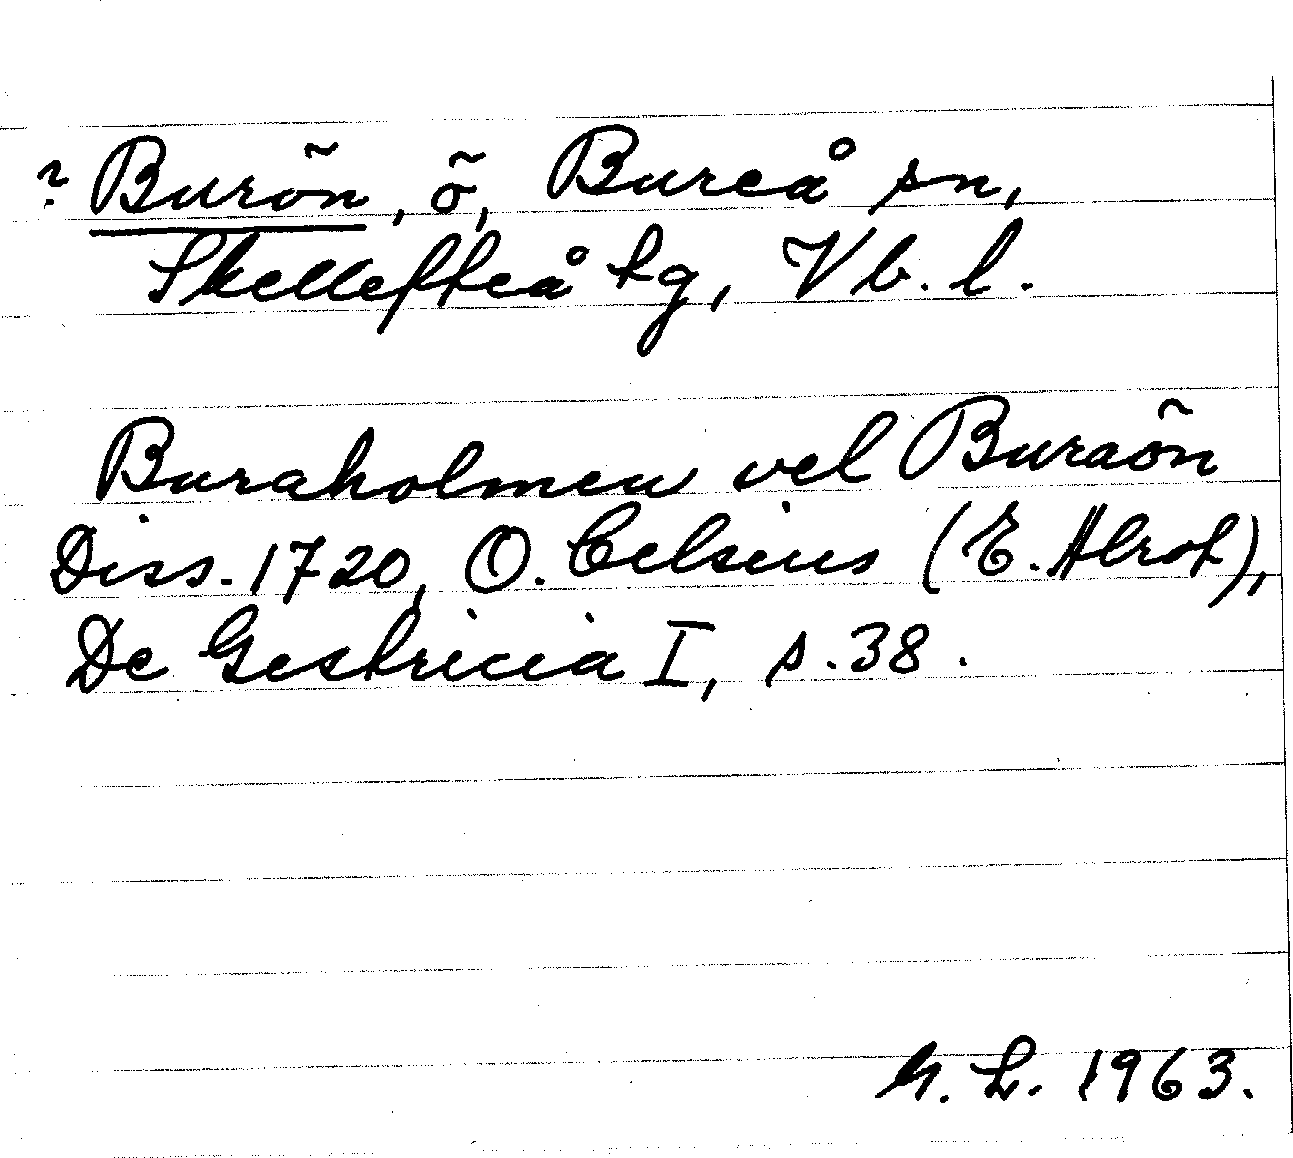 ? Burön, ö, Bureå sn,
Skellefteå tg, Vb. l.
Buraholmen vel Buraön
Diss. 1720, O. Celsius (E. Alrot),
De Gestricia I, s. 38.
1963.